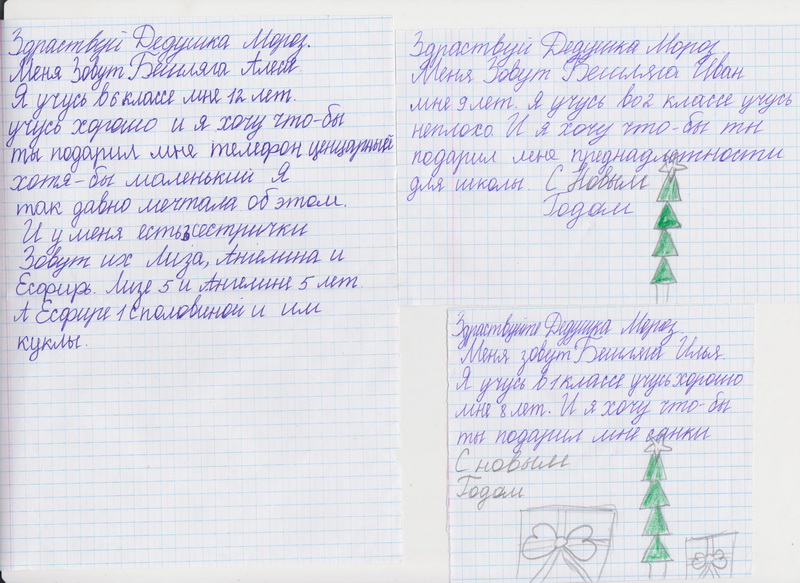 Здраствуй Дедушка Мороз.
Меня Зовут Бешляга Алеся.
Я учусь в 6 классе мне 12 лет.
учусь хорошо и я хочу что-бы
ты подарил мне телефон ценцарный
хотя-бы маленький Я
так давно мечтала об этом.
И у меня есть 3 сестрички
Зовут их Лиза, Ангелина и
Есфирь. Лизе 5 и Ангелине 5 лет
А Есфире 1 с половиной и им
куклы.
Здраствуй Дедушка Мороз
Меня Зовут Бешляга Иван
мне 9 лет. Я учусь во 2 классе учусь
неплохо. И я хочу что-бы ты
подарил мне преднадлетности
для школы. С Новым
Годом
Здраствуйте Дедушка Мороз
Меня зовут Бешляга Илья.
Я учусь в 1 классе учусь хорошо
мне 8 лет. И я хочу что-бы
ты подарил мне санки
С новым
Годом